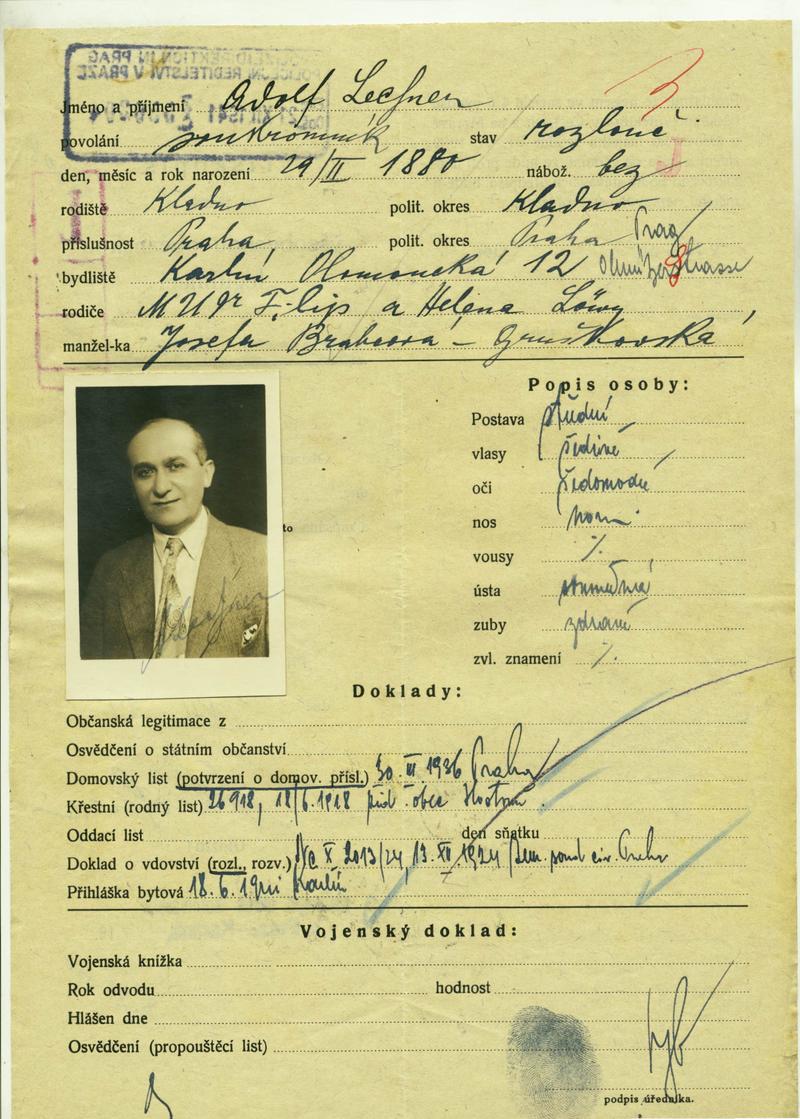 POLIZEIDIREKTION IN PRAG
POLICEJNÍ ŘEDITELSTVÍ V PRAZE
Jméno a příjmení Adolf Lechner
povolání soukromník stav rozlouč.
den, měsíc a rok narození 29/II 1880 nábož. bez
rodiště Kladno polit. okres Kladno
příslušnost Praha polit. okres Praha Prag
bydliště Karlín Olomoucká 12 Olmützerstrasse
rodiče MUDr Filip a Helena Löwy
manžel-ka Josefa Brabcová - Gruškovská
Popis osoby:
Postava střední
vlasy šedivé
oči šedomodré
nos norm.
vousy %
ústa souměrná
zuby zdravé
zvl. znamení %
to
Lechner
Doklady:
Občanská legitimace z
Osvědčení o státním občanství
Domovský list (potvrzení o domov. přísl.) 30. III. 1936 Praha
Křestní (rodný list) 26918, 18/6. 1918 obec
Oddací list den sňatku
Doklad o vdovství (rozl., rozv.) Nc X 2013/24, 13. XII. 1924 civ. Praha
Přihláška bytová 18. 6. Karlín
Vojenský doklad:
Vojenská knížka
Rok odvodu hodnost
Hlášen dne
Osvědčení (propouštěcí list)
podpis úředníka.